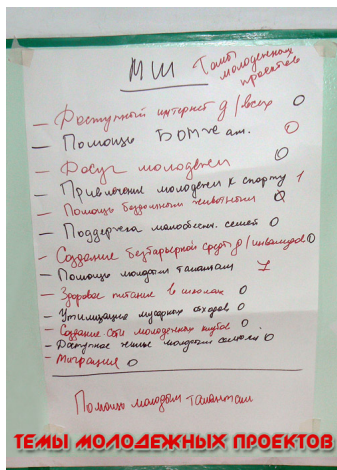 МШ
Темы
молодежных
проектов
- Доступный интернет д/всех 0
- Помощь БОМЖ ам. 0
- Досуг молодежи 0
- Привлечение молодежи к спорту 1
- Помощь бездомным животным 0
- Поддержка малообесп. семей 0
- Создание безбарьерной среды д/инвалидов 0
- Помощь молодым талантам 7
- Здоровое питание в школах 0
- Утилизация мусорных отходов 0
- Создание сети молодежных клубов 0
- Доступное жилье молодым семьям 0
- Миграция 0
Помощь молодым талантам
ТЕМЫ МОЛОДЕЖНЫХ ПРОЕКТОВ